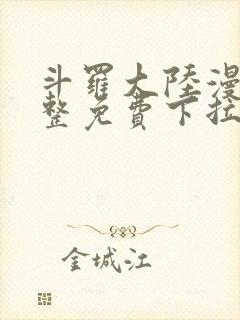 斗羅大陸漫
整免費下拉
金城江